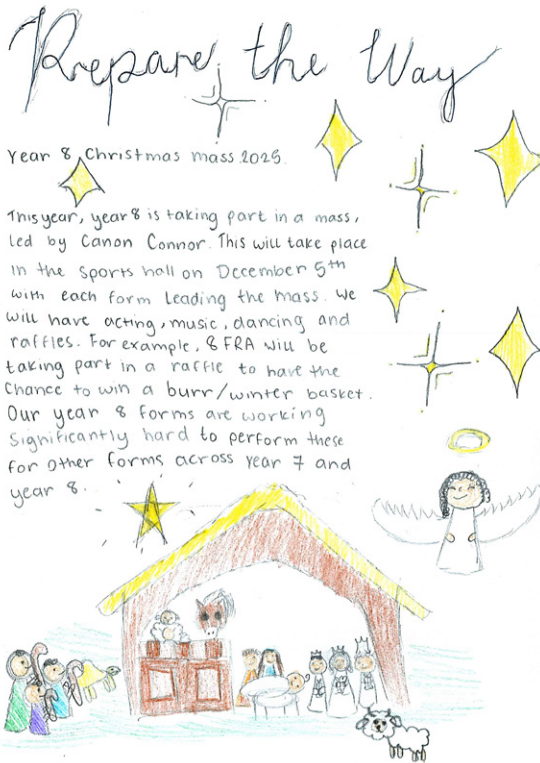 Prepare the Way
Year 8 Christmas mass 2025.
This year, year 8 is taking part in a mass,
led by Canon Connor. This will take place
in the sports hall on December 5th
with each form leading the mass. We
will have acting, music, dancing and
raffles. For example, 8FRA will be
taking part in a raffle to have the
chance to win a burr/winter basket.
Our year 8 forms are working
significantly hard to perform these
for other forms across year 7 and
year 8.